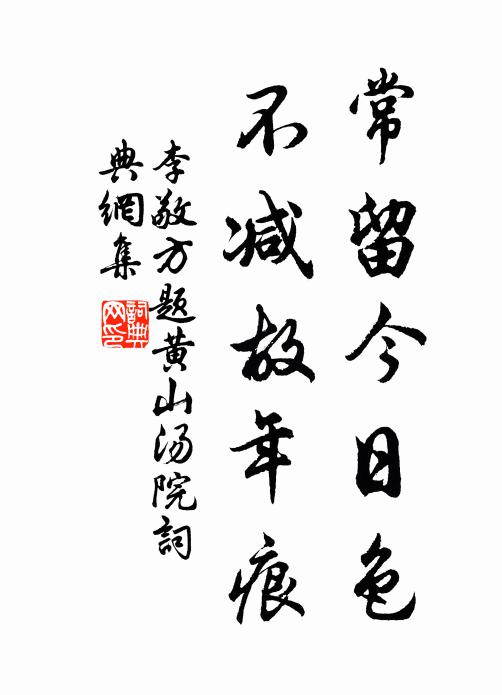 常留今日色
不减故年痕
李敬方题黄山汤院詞
典網集
詞典網印